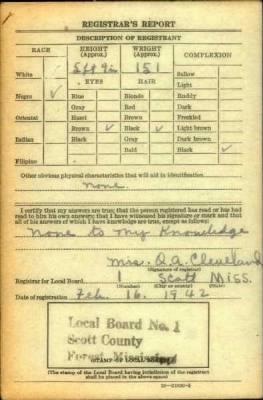 REGISTRAR'S REPORT
DESCRIPTION OF REGISTRANT
RACE HEIGHT (Approx.) WEIGHT (Approx.) COMPLEXION
5 ft 9 in 151
White Sallow
EYES HAIR Light
Negro ✓ Blue Blonde Ruddy
Gray Red Dark
Oriental Hazel Brown Freckled
Brown ✓ Black ✓ Light brown
Indian Black Gray Dark brown
Bald Black ✓
Filipino
Other obvious physical characteristics that will aid in identification
None.
I certify that my answers are true; that the person registered has read or has had
read to him his own answers; that I have witnessed his signature or mark and that
all of his answers of which I have knowledge are true, except as follows:
None to my Knowledge
Mrs. Q.A. Cleveland
(Signature of registrar)
Registrar for Local Board 1 Scott Miss.
(Number) (City or county) (State)
Date of registration Feb. 16. 1942
Local Board No. 1
Scott County
Forest, Mississippi
(STAMP OF LOCAL BOARD)
(The stamp of the Local Board having jurisdiction of the registrant
shall be placed in the above space)